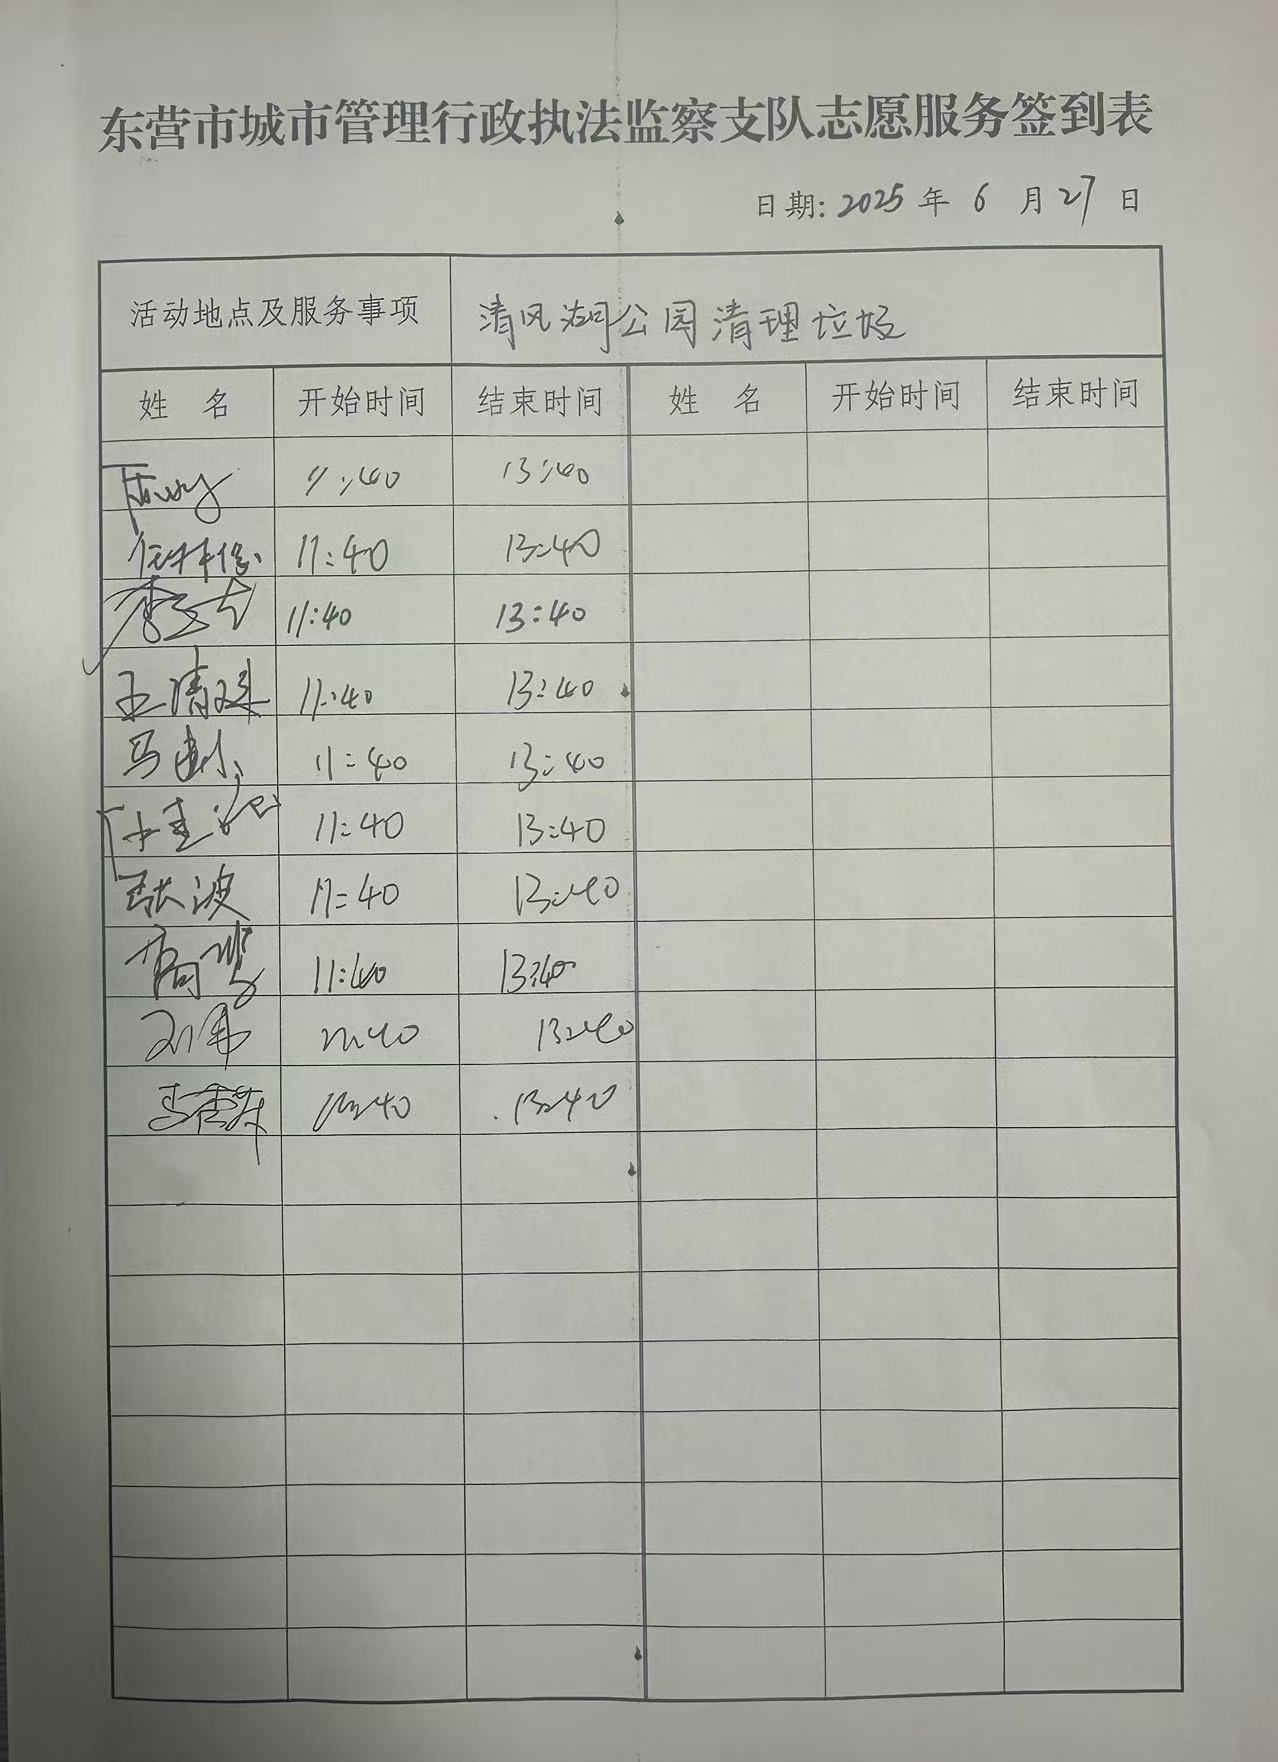 东营市城市管理行政执法监察支队志愿服务签到表
日期: 2025 年 6 月 27 日
活动地点及服务事项 清风湖公园清理垃圾
姓 名 开始时间 结束时间 姓 名 开始时间 结束时间
11:40 13:40
11:40 13:40
11:40 13:40
王清 11:40 13:40
马 11:40 13:40
11:40 13:40
张波 11:40 13:40
高 11:40 13:40
刘伟 11:40 13:40
11:40 13:40